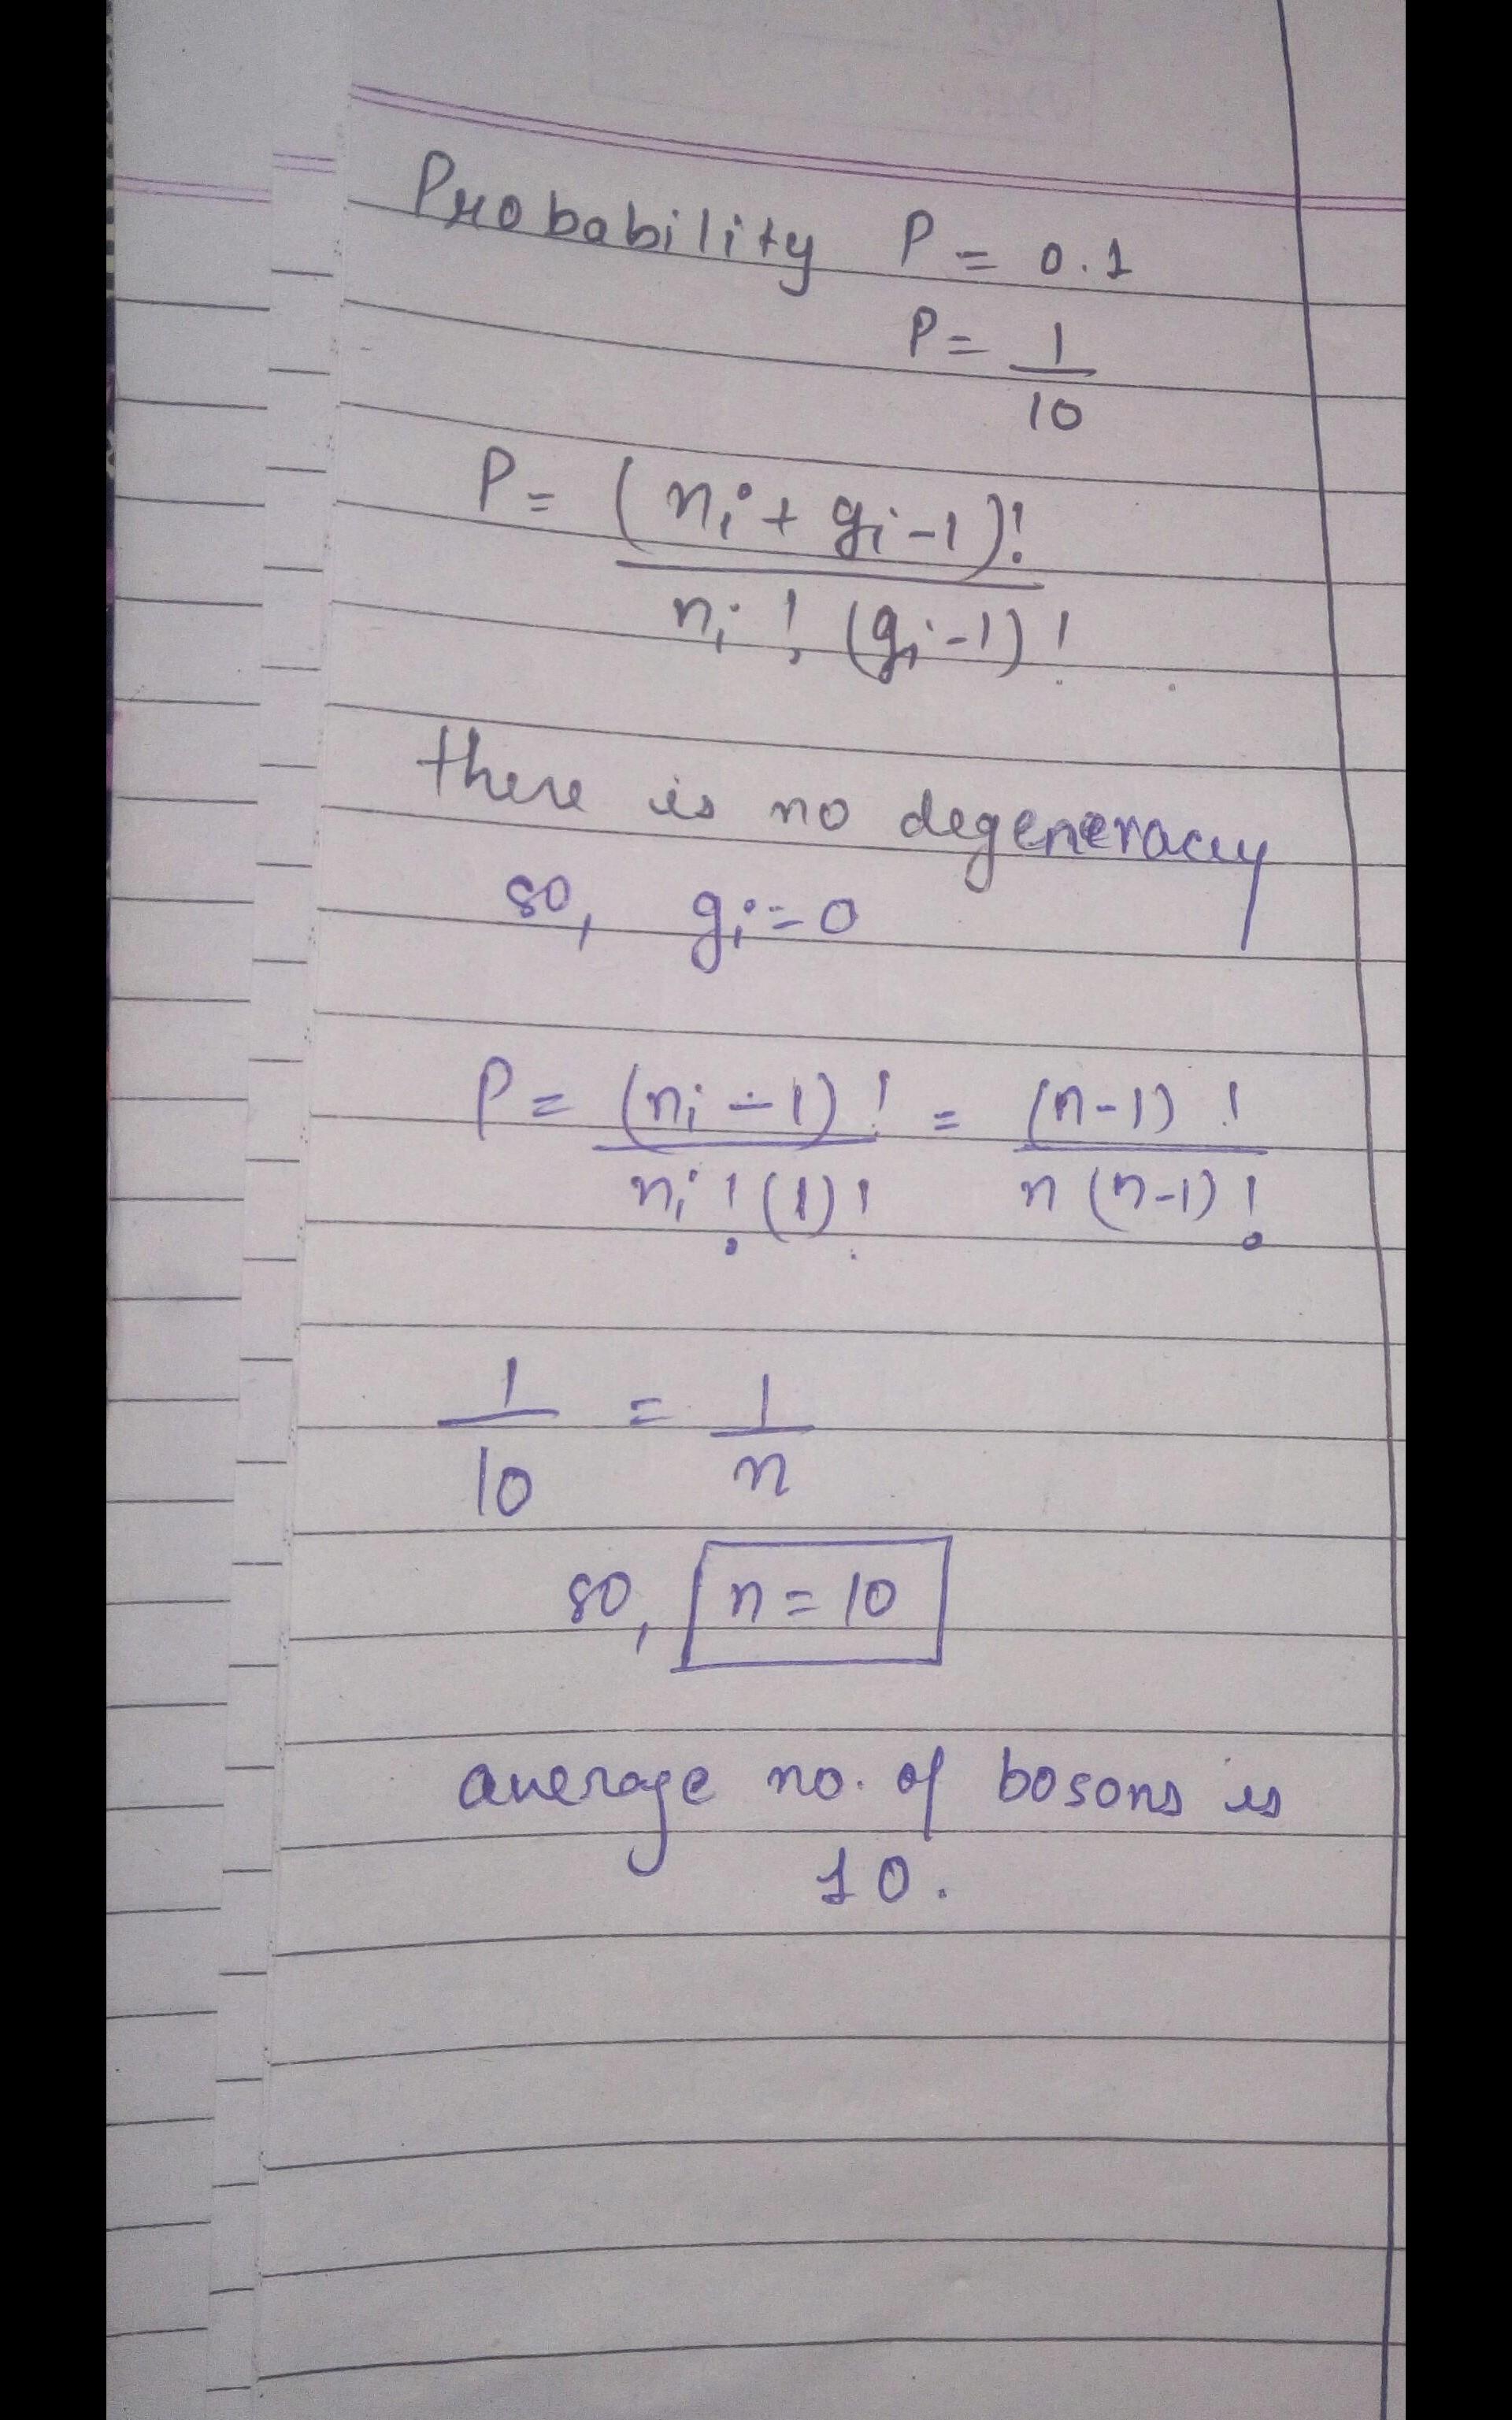 Probability P = 0.1
P = 1/10
P = (ni + gi - 1)! / ni! (gi - 1)!
there is no degeneracy
so, gi = 0
P = (ni - 1)! / ni! (1)! = (n-1)! / n (n-1)!
1/10 = 1/n
so, n = 10
average no. of bosons is
10.